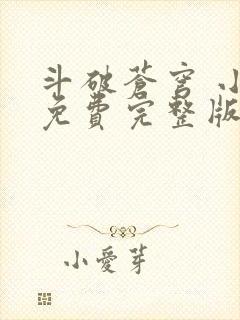 斗破蒼穹 小
免費完整版
小愛芽